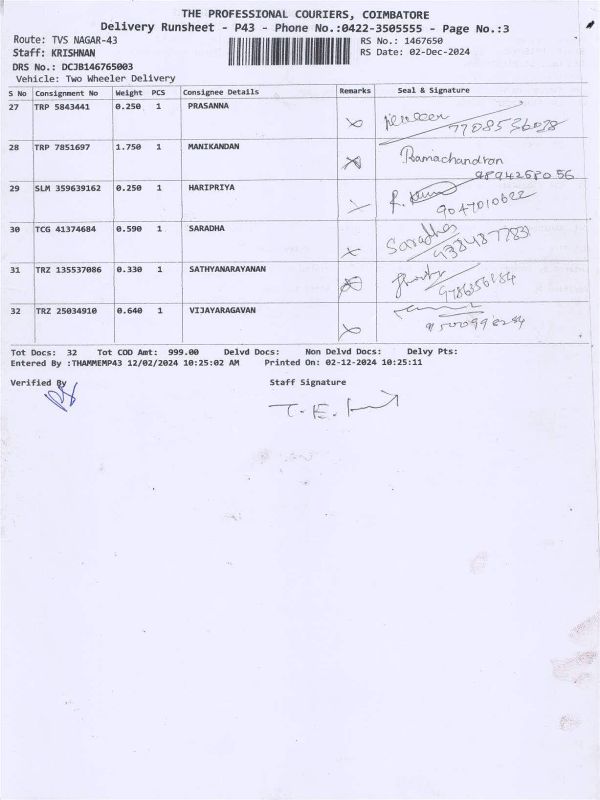 THE PROFESSIONAL COURIERS, COIMBATORE
Delivery Runsheet - P43 - Phone No.:0422-3505555 - Page No.:3
Route: TVS NAGAR-43 RS No.: 1467650
Staff: KRISHNAN RS Date: 02-Dec-2024
DRS No.: DCJB146765003
Vehicle: Two Wheeler Delivery
S No Consignment No Weight PCS Consignee Details Remarks Seal & Signature
27 TRP 5843441 0.250 1 PRASANNA
28 TRP 7851697 1.750 1 MANIKANDAN Ramachandran
9894268056
29 SLM 359639162 0.250 1 HARIPRIYA
9047010622
30 TCG 41374684 0.590 1 SARADHA Saradha
31 TRZ 135537086 0.330 1 SATHYANARAYANAN
32 TRZ 25034910 0.640 1 VIJAYARAGAVAN
Tot Docs: 32 Tot COD Amt: 999.00 Delvd Docs: Non Delvd Docs: Delvy Pts:
Entered By :THAMMEMP43 12/02/2024 10:25:02 AM Printed On: 02-12-2024 10:25:11
Verified By Staff Signature